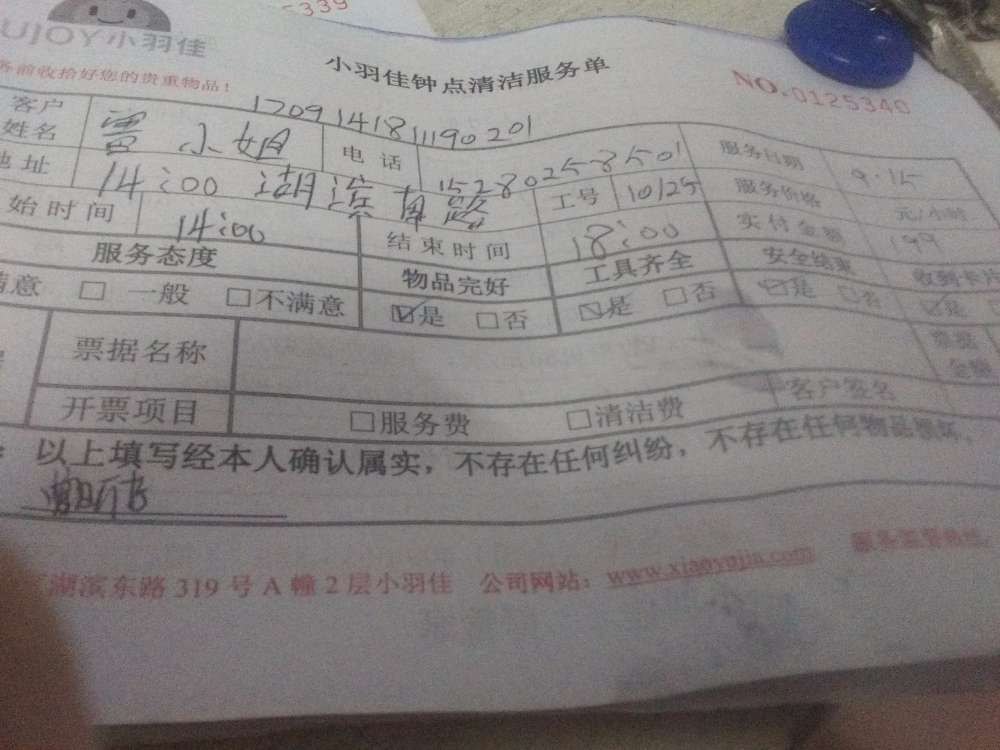 5339
UJOY小羽佳
务前收拾好您的贵重物品！
小羽佳钟点清洁服务单
NO.0125340
170914181119020​1
客户姓名 小姐 电话 15280258501 服务日期 9.15
地址 14:00 湖滨南路 工号 10125 服务价格 元/小时
始时间 14:00 结束时间 18:00 实付金额 99
服务态度 物品完好 工具齐全 安全结束 收到卡片
满意 □ 一般 □不满意 ☑是 □否 ☑是 □否 ☑是 □否 ☑是
票据名称 票据金额
开票项目 □服务费 □清洁费 客户签名
：以上填写经本人确认属实，不存在任何纠纷，不存在任何物品损坏。
湖滨东路 319 号 A 幢 2 层小羽佳 公司网站：www.xiaoyujia.com 服务监督热线